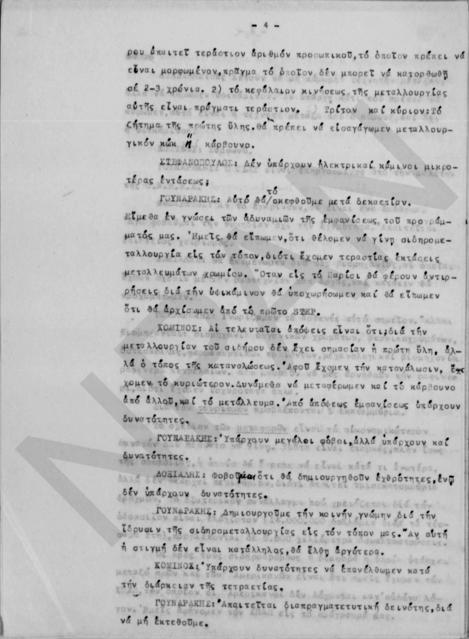 - 4 -
ρου ἀπαιτεῖ τεράστιον ἀριθμόν προσωπικοῦ, τό ὁποῖον πρέπει νά
εἶναι μορφωμένον, πρᾶγμα τό ὁποῖον δέν μπορεῖ νά κατορθωθῆ
σέ 2-3 χρόνια. 2) τό κεφάλαιον κινήσεως τῆς μεταλλουργίας
αὐτῆς εἶναι πράγματι τεράστιον. Τρίτον καί κύριον: Τό
ζήτημα τῆς πρώτης ὕλης. Θά πρέπει νά εἰσαγάγωμεν μεταλλουρ-
γικόν κώκ ἤ κάρβουνο.
ΣΤΕΦΑΝΟΠΟΥΛΟΣ: Δέν ὑπάρχουν ἠλεκτρικαί κάμινοι μικρο-
τέρας ἐντάσεως;
ΓΟΥΝΑΡΑΚΗΣ: Αὐτό θά τό σκεφθοῦμε μετά δεκαετίαν.
Εἴμεθα ἐν γνώσει τῶν ἀδυναμιῶν τῆς ἐμφανίσεως τοῦ προγράμ-
ματός μας. Ἡμεῖς θά εἴπωμεν, ὅτι θέλομεν νά γίνῃ σιδηρομε-
ταλλουργία εἰς τόν τόπον, διότι ἔχομεν τεραστίας ἐκτάσεις
μεταλλευμάτων χρωμίου. Ὅταν εἰς τό Παρίσι θά φέρουν ἀντιρ-
ρήσεις διά τήν ὑψικάμινον θά ὑποχωρήσωμεν καί θά εἴπωμεν
ὅτι θά ἀρχίσωμεν ἀπό τό πρῶτο STEP.
ΚΟΜΙΝΟΣ: Αἱ τελευταῖαι ἀπόψεις εἶναι ὅτι διά τήν
μεταλλουργίαν τοῦ σιδήρου δέν ἔχει σημασίαν ἡ πρώτη ὕλη, ἀλ-
λά ὁ τόπος τῆς καταναλώσεως. Ἀφοῦ ἔχομεν τήν κατανάλωσιν, ἔ-
χομεν τό κυριώτερον. Δυνάμεθα νά μεταφέρωμεν καί τό κάρβουνο
ἀπό ἀλλοῦ, καί τό μετάλλευμα. Ἀπό ἀπόψεως ἐμφανίσεως ὑπάρχουν
δυνατότητες.
ΓΟΥΝΑΡΑΚΗΣ: Ὑπάρχουν μεγάλοι φόβοι, ἀλλά ὑπάρχουν καί
δυνατότητες.
ΔΟΞΙΑΔΗΣ: Φοβοῦμαι, ὅτι θά δημιουργηθοῦν ἐχθρότητες, ἐνῶ
δέν ὑπάρχουν δυνατότητες.
ΓΟΥΝΑΡΑΚΗΣ: Δημιουργοῦμε τήν κοινήν γνώμην διά τήν
ἵδρυσιν τῆς σιδηρομεταλλουργίας εἰς τόν τόπον μας. Ἄν αὐτή
ἡ στιγμή δέν εἶναι κατάλληλος, θά ἔλθῃ ἀργότερα.
ΚΟΜΙΝΟΣ: Ὑπάρχουν δυνατότητες νά ἐπανέλθωμεν κατά
τήν διάρκειαν τῆς τετραετίας.
ΓΟΥΝΑΡΑΚΗΣ: Ἀπαιτεῖται διαπραγματευτική δεινότης, διά
νά μή ἐκτεθοῦμε.